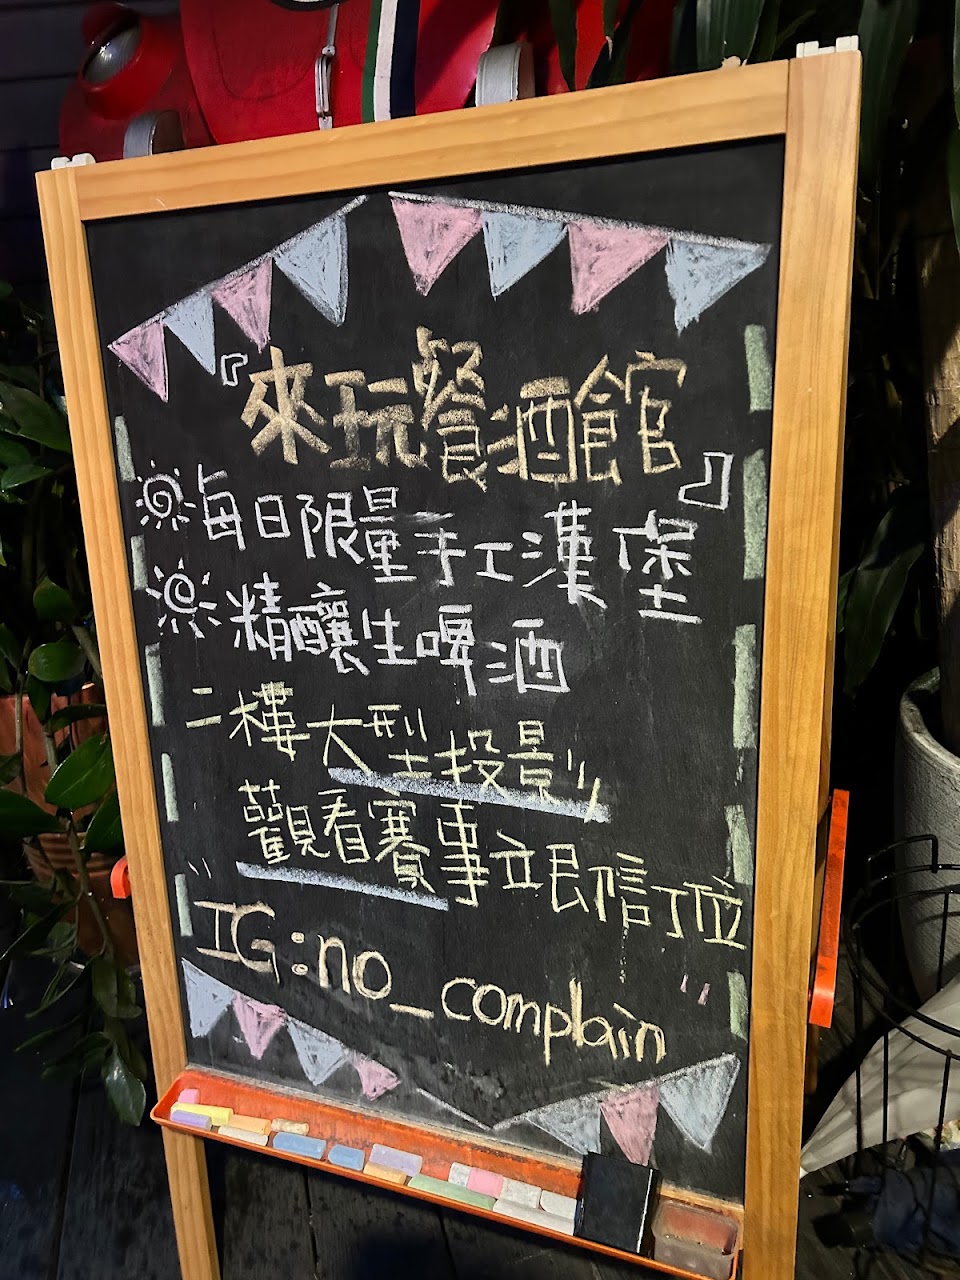 『來玩餐酒館』
每日限量手工漢堡
精釀生啤酒
二樓大型投影
觀看賽事
IG:no_complain